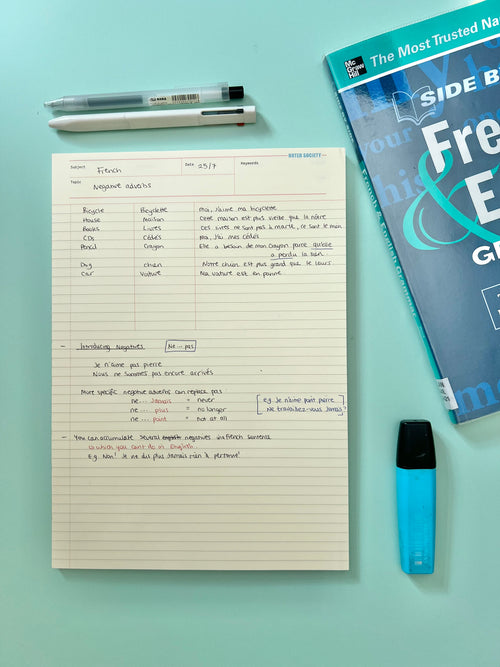 Mc
Graw
Hill
The Most Trusted Na
SIDE B
Fre
&
E
G
French & English Grammar
NOTED SOCIETY
Subject French
Date 25/7
Keywords
Topic Negative adverbs
Bicycle Bicyclette moi, j'aime ma bicyclette
House Maison Cette maison est plus vieille que la nôtre
Books Livres Ces livres ne sont pas à marie, ce sont le mien
CDs Cédés moi, j'ai mes cédés
Pencil Crayon Elle a besoin de mon crayon parce qu'elle
a perdu la sien
Dog chien Notre chien est plus grand que le leurs.
Car Voiture Ma voiture est en panne
- Introducing Negatives Ne ... pas
Je n'aime pas pierre
Nous ne sommes pas encore arrivés
More specific negative adverbs can replace pas:
ne ... Jamais = never
ne ... plus = no longer
ne ... point = not at all
e.g Je n'aime point pierre
Ne travaillez-vous Jamais?
- You can accumulate several negatives in French sentence
which you cant do in English.
E.g. Non! Je ne dis plus Jamais rien à personne!